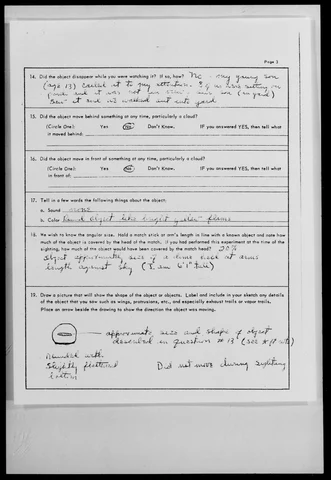 Page 3
14. Did the object disappear while you were watching it? If so, how? No - my young son
(age 13) called it to my attention.
saw it and we walked out into yard
15. Did the object move behind something at any time, particularly a cloud?
(Circle One): Yes No Don't Know. IF you answered YES, then tell what
it moved behind:
16. Did the object move in front of something at any time, particularly a cloud?
(Circle One): Yes No Don't Know. IF you answered YES, then tell what
in front of:
17. Tell in a few words the following things about the object:
a. Sound none
b. Color Round object like bright golden flame
18. We wish to know the angular size. Hold a match stick at arm's length in line with a known object and note how
much of the object is covered by the head of the match. If you had performed this experiment at the time of the
sighting, how much of the object would have been covered by the match head? 20%
Object approximately size of a dime held at arms
length against sky (I am 6'1" tall)
19. Draw a picture that will show the shape of the object or objects. Label and include in your sketch any details
of the object that you saw such as wings, protrusions, etc., and especially exhaust trails or vapor trails.
Place an arrow beside the drawing to show the direction the object was moving.
approximate size and shape of object
described in question # 13 (see
Rounded with
slightly flattened
bottom
Did not move during sighting